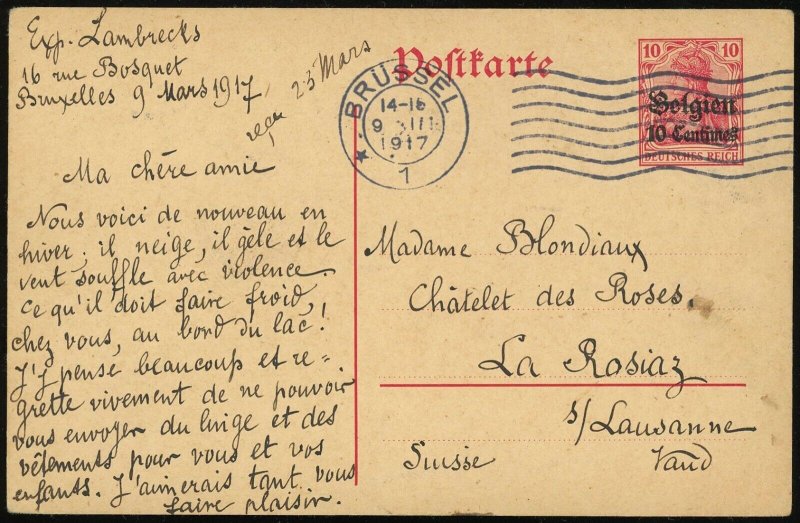 Exp. Lambrecks
16 rue Bosquet
Bruxelles 9 Mars 1917
reçu 23 Mars
Ma chère amie
Nous voici de nouveau en
hiver; il neige, il gèle et le
vent souffle avec violence.
Ce qu'il doit faire froid,
chez vous, au bord du lac!
J'y pense beaucoup et re=
grette vivement de ne pouvoir
vous envoyer du linge et des
vêtements pour vous et vos
enfants. J'aimerais tant vous
faire plaisir.
Postkarte
BRÜSSEL
14-15
9 III
1917
1
10 10
Belgien
10 Centimes
DEUTSCHES REICH
Madame Blondiaux
Châtelet des Roses.
La Rosiaz
s/Lausanne
Suisse Vaud